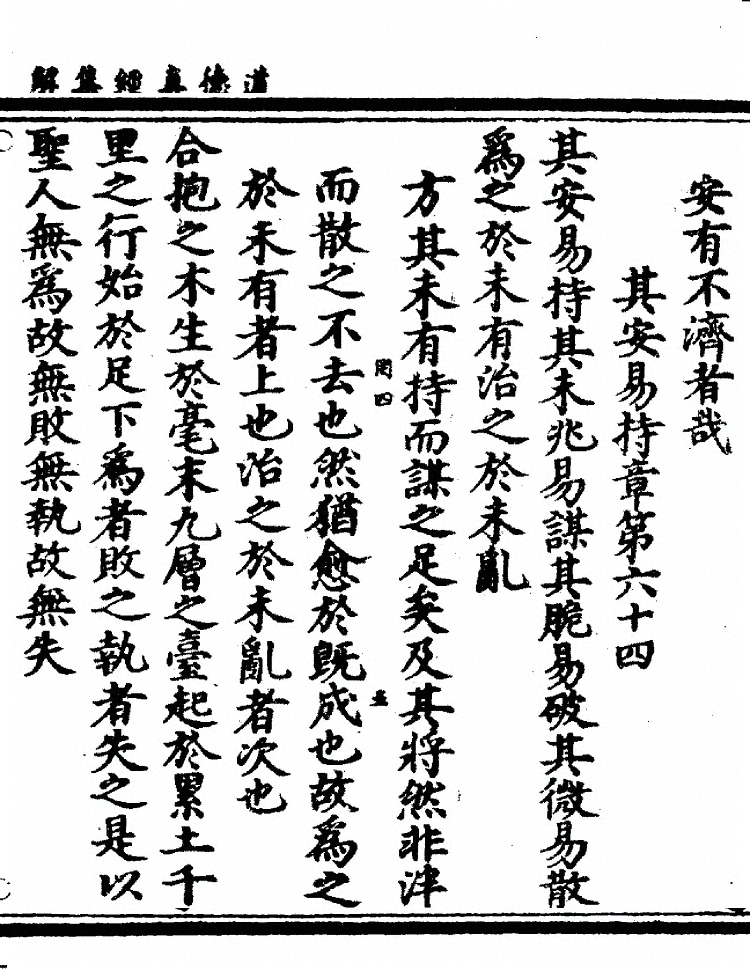 道德真經集解
安有不濟者哉
其安易持章第六十四
其安易持其未兆易謀其脆易破其微易散
爲之於未有治之於未亂
方其未有持而謀之足矣及其將然非泮
罔四
五
而散之不去也然猶愈於既成也故爲之
於未有者上也治之於未亂者次也
合抱之木生於毫末九層之臺起於累土千
里之行始於足下爲者敗之執者失之是以
聖人無爲故無敗無執故無失